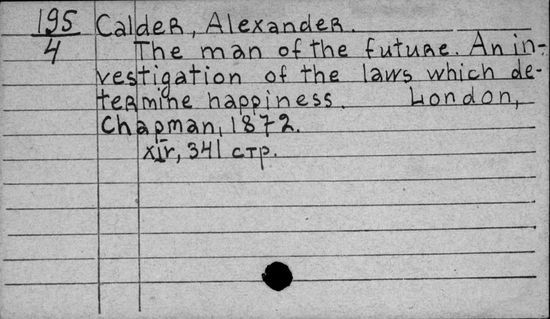 195 Calder, Alexander.
4 The man of the future. An in-
vestigation of the laws which de-
termine happiness. London,
Chapman, 1872.
xii, 341 стр.